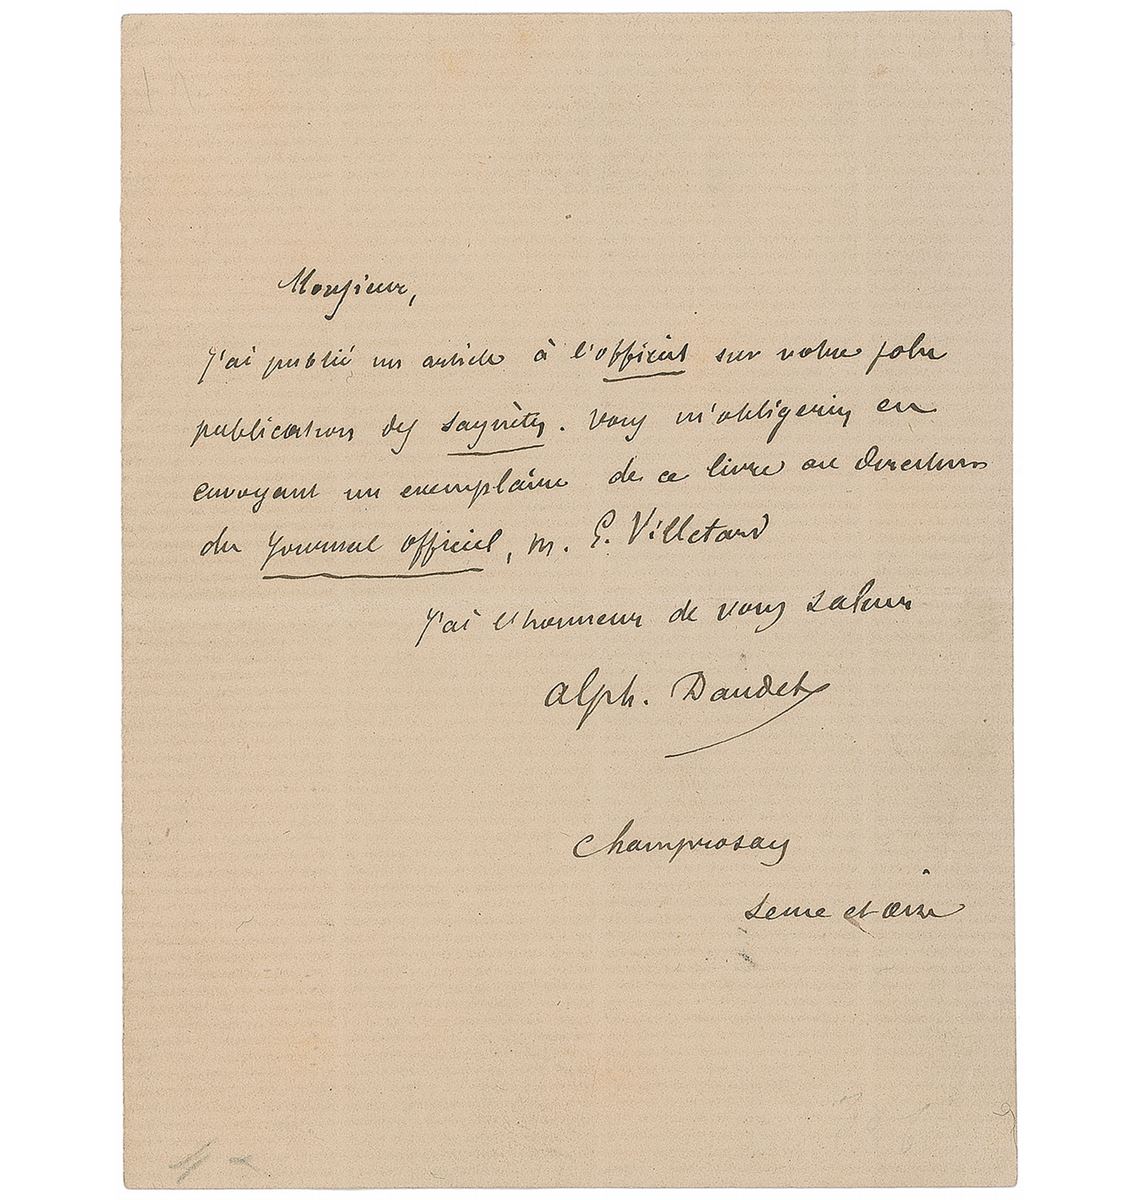 Monsieur,
J'ai publié un article à l'officiel sur votre jolie
publication des saynètes. Vous m'obligeriez en
envoyant un exemplaire de ce livre au directeur
du Journal officiel, M. E. Villetard
J'ai l'honneur de vous saluer
Alph. Daudet
Champrosay
Seine et Oise